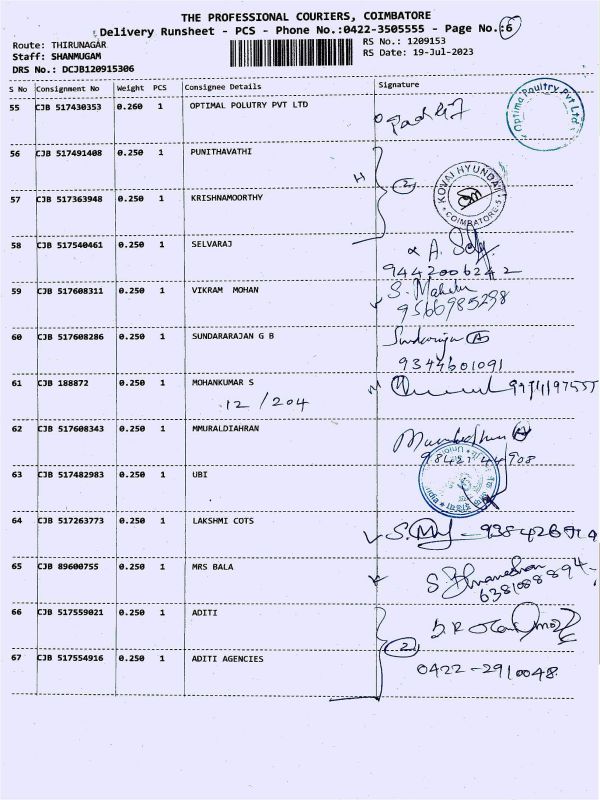 THE PROFESSIONAL COURIERS, COIMBATORE
Delivery Runsheet - PCS - Phone No.:0422-3505555 - Page No.:6
Route: THIRUNAGAR
Staff: SHANMUGAM
DRS No.: DCJB120915306
RS No.: 1209153
RS Date: 19-Jul-2023
S No Consignment No Weight PCS Consignee Details Signature
55 CJB 517430353 0.260 1 OPTIMAL POLUTRY PVT LTD
Optima Poultry Pvt Ltd
56 CJB 517491408 0.250 1 PUNITHAVATHI
H 2
KOVAI HYUNDAI
COIMBATORE-5
57 CJB 517363948 0.250 1 KRISHNAMOORTHY
58 CJB 517540461 0.250 1 SELVARAJ
9442006242
59 CJB 517608311 0.250 1 VIKRAM MOHAN
9566985298
60 CJB 517608286 0.250 1 SUNDARARAJAN G B
9344601091
61 CJB 188872 0.250 1 MOHANKUMAR S
12 / 204
62 CJB 517608343 0.250 1 MMURALDIAHRAN
63 CJB 517482983 0.250 1 UBI
64 CJB 517263773 0.250 1 LAKSHMI COTS
65 CJB 89600755 0.250 1 MRS BALA
66 CJB 517559021 0.250 1 ADITI
2
67 CJB 517554916 0.250 1 ADITI AGENCIES
0422-2910048